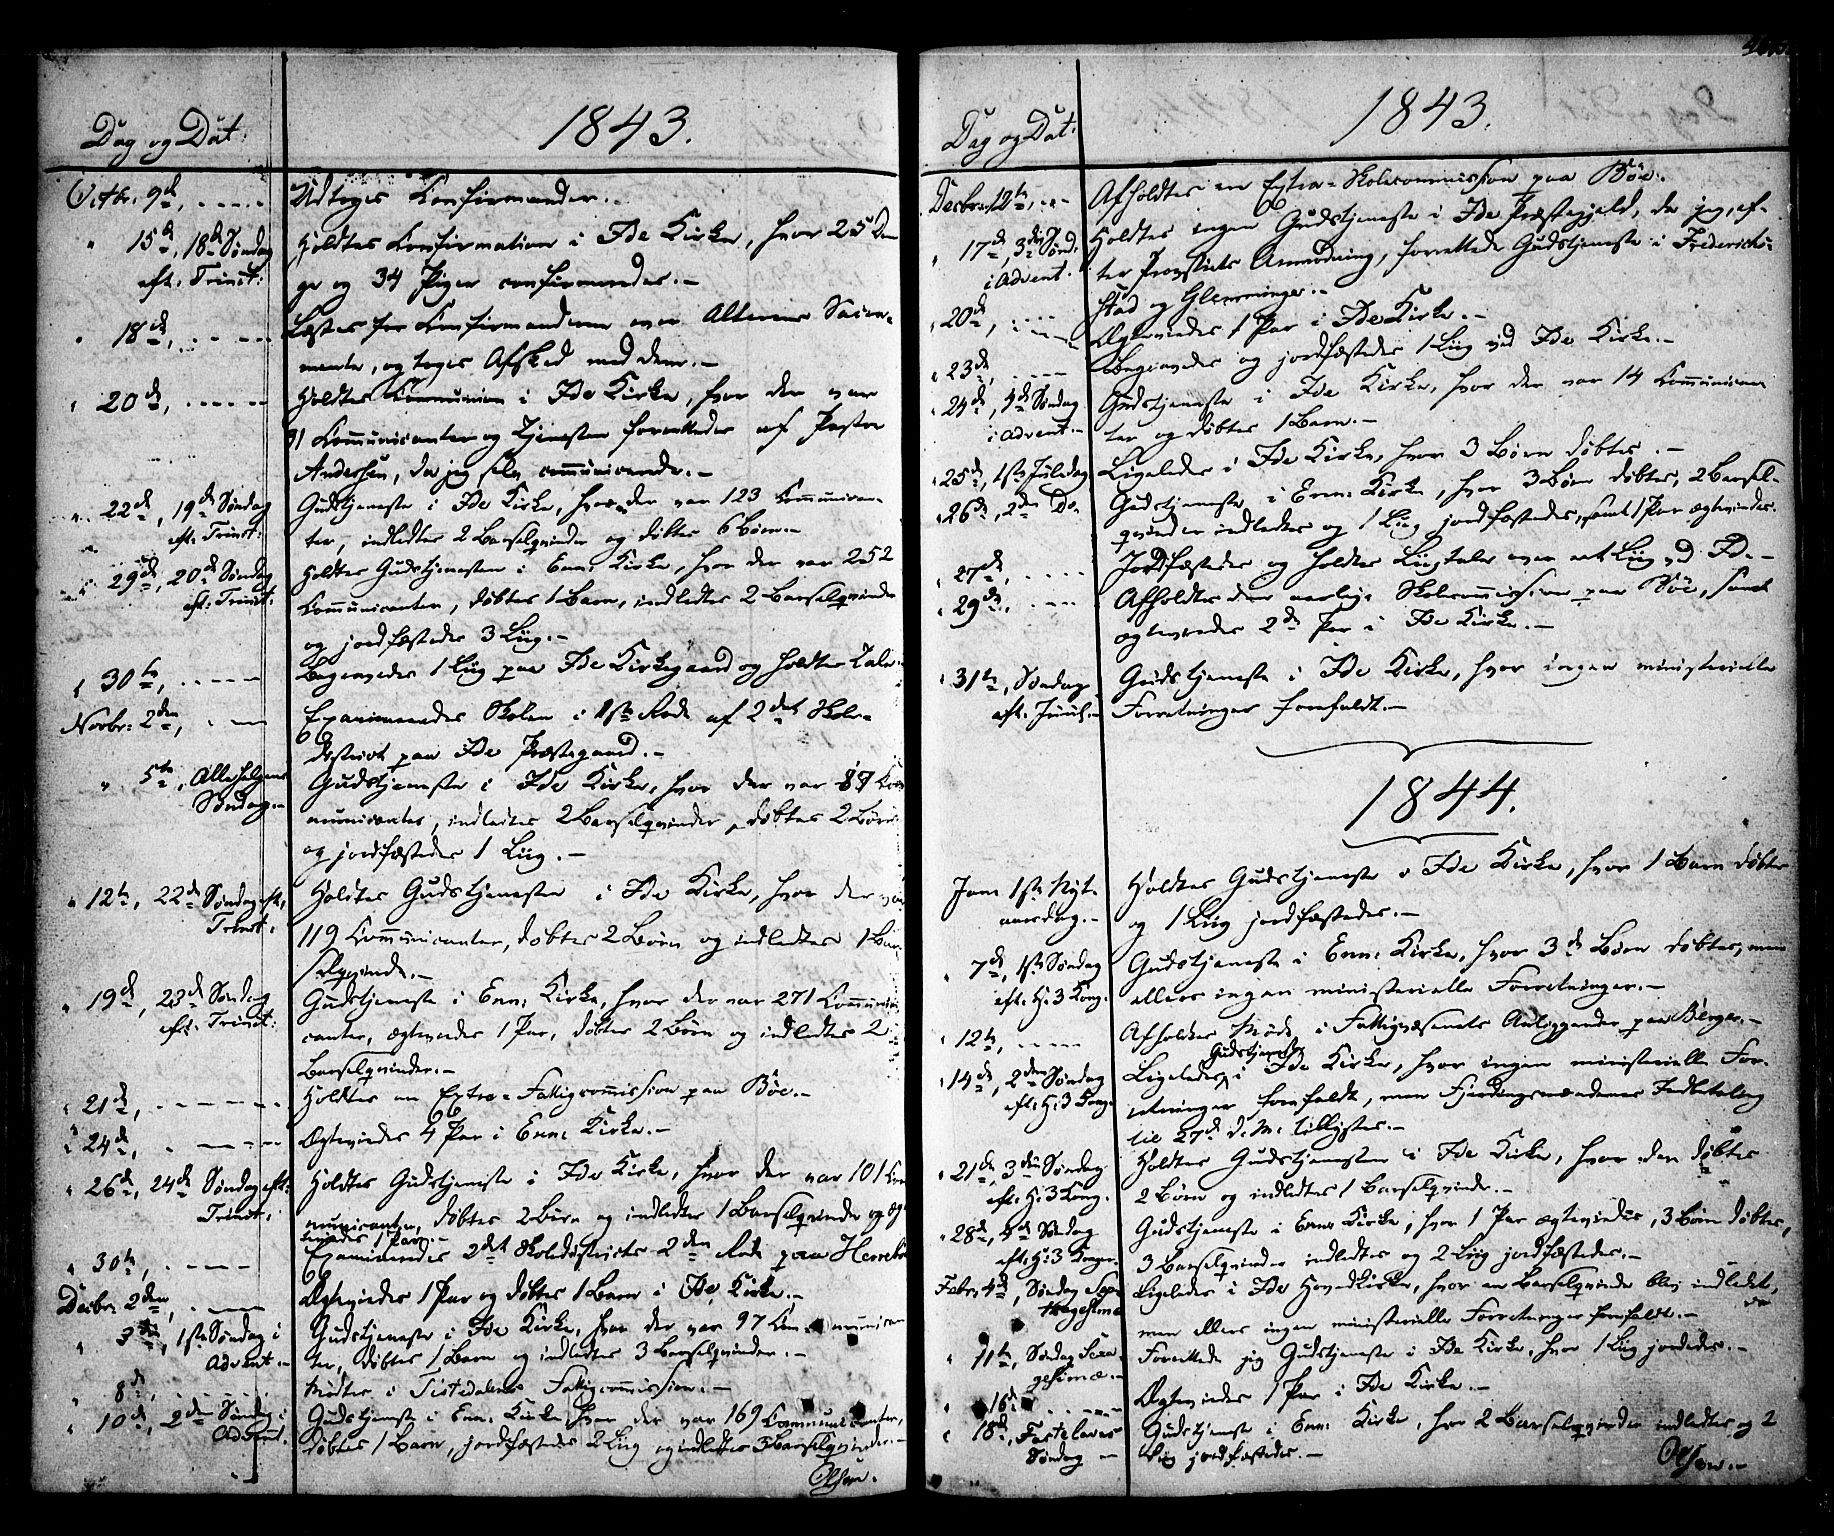 Dag og Dat:
1843.
Octbr. 9d, Udtoges Konfirmander.
" 15d, 18d Søndag eft: Trinit: Holdtes Konfirmation i Ide Kirke, hvor 25 Dren
ge og 34 Piger confirmeredes.-
" 18d, Læstes for Konfirmanderne over Alterens Sacra-
mente, og toges Afsked med dem.-
" 20d, Holdtes Communion i Ide Kirke, hvor der var
91 Communicanter og Tjenesten forrettedes af Pastor
Anderssen, da jeg selv communicerede.-
" 22d, 19d Søndag eft: Trinit: Gudstjeneste i Ide Kirke, hvor der var 123 Communican-
ter, indledtes 2 Barselqvinder og døbtes 6 Børn.-
" 29d, 20d Søndag eft: Trinit: Holdtes Gudstjenesten i Enn: Kirke, hvor der var 252
Communicanter, døbtes 1 Barn, indledtes 2 Barselqvinder
og jordfæstedes 3 Liig.-
" 30te, Begravedes 1 Liig paa Ide Kirkegaard og holdtes Tale.
Novbr: 2den, Examineredes Skolen i 1ste Rode af 2det Skole-
district paa Ide Præstegaard.-
" 5te, Allehelgens Søndag.- Gudstjeneste i Ide Kirke, hvor der var 87 Com
municanter, indledtes 2 Barselqvinder, døbtes 2 Børn
og jordfæstedes 1 Liig.-
" 12te, 22d Søndag eft, Trinit: Holdtes Gudstjenesten i Ide Kirke, hvor der var
119 Communicanter, døbtes 2 Børn og indledtes 1 Bar
selqvinde.-
" 19d, 23d Søndag eft: Trinit: Gudstjeneste i Enn: Kirke, hvor der var 271 Communi
canter, ægteviedes 1 Par, døbtes 2 Børn og indledtes 2
Barselqvinder.-
" 21d, Holdtes en Extra-Fattigcommission paa Bøe.-
" 24d, Ægteviedes 4 Par i Enn: Kirke.-
" 26d, 24d Søndag eft: Trinit: Holdtes Gudstjeneste i Ide Kirke, hvor der var 101 Com
municanter, døbtes 2 Børn og indledtes 1 Barselqvinde og æg
teviedes 1 Par.-
" 30te, Examineredes 2det Skoledistricts 2den Rode paa Herrebrø
Decbr: 2den, Ægteviedes 1 Par og døbtes 1 Barn i Ide Kirke.-
" 3die, 1ste Søndag i Advent.- Gudstjeneste i Ide Kirke, hvor der var 97 Communican
ter, døbtes 1 Barn og indledtes 3 Barselqvinder.-
" 8d, Mødtes i Tistedalens Fattigcommission.-
" 10d, 2den Søndag i Advent. Gudstjeneste i Enn: Kirke hvor der var 169 Communicanter,
døbtes 1 Barn, jordfæstedes 2 Liig og indledtes 3 Barselqvinder.-
Olsen.
Dag og Dat:
1843.
Decbr. 12te, Afholdtes en Extra-Skolecommission paa Bøe.
" 17d, 3die Sønd: i Advent. Holdtes ingen Gudstjeneste i Ide Præstegjeld, da jeg, ef-
ter Provstiets Anmodning, forrettede Gudstjeneste i Frederich-
stad og Glemminge.-
" 20d, Ægteviedes 1 Par i Ide Kirke.-
" 23d, Begravedes og jordfæstedes 1 Liig ved Ide Kirke.-
" 24d, 4d Søndag i Advent.- Gudstjeneste i Ide Kirke, hvor der var 14 Communican
ter og døbtes 1 Barn.-
" 25d, 1ste Juledag Ligeledes i Ide Kirke, hvor 3 Børn døbtes.-
" 26d, 2den Do. Gudstjeneste i Enn: Kirke, hvor 3 Børn døbtes, 2 Barsel-
qvinder indledtes og 1 Liig jordfæstedes, samt 1 Par ægteviedes.
" 27d, Jordfæstedes og holdtes Liigtale over et Liig ved Ide.-
" 29d, Afholdtes den aarlige Skolecommission paa Bøe, samt
ægteviedes 2de Par i Ide Kirke.-
" 31te, Søndag eft: Juul.- Gudstjeneste i Ide Kirke, hvor ingen ministerielle
Forretninger forefaldt.-
1844.
Jan: 1ste Nyt-
aarsdag.- Holdtes Gudstjeneste i Ide Kirke, hvor 1 Barn døbtes
og 1 Liig jordfæstedes.-
" 7d, 1ste Søndag eft: H: 3 Kong. Gudstjeneste i Enn: Kirke, hvor 3de Børn døbtes, men
ellers ingen ministerielle Forretninger.-
" 12te, Afholdtes Møde i Fattigvæsenets Anliggender paa Berger.-
" 14d, 2den Søndag eft: H: 3 Kong. Ligeledes Gudstjeneste i Ide Kirke, hvor ingen ministerielle For-
retninger forefaldt, men Fjerdingsmændenes Indbetaling
til 27d d. M. tillystes.-
" 21d, 3die Søndag eft: H: 3 Kong. Holdtes Gudstjenesten i Ide Kirke, hvor der døbtes
2 Børn og indledtes 1 Barselqvinde.-
" 28d, 4d Søndag eft: H: 3 Konger.- Gudstjeneste i Enn: Kirke, hvor 1 Par ægteviedes, 3 Børn døbtes,
3 Barselqvinder indledtes og 2 Liig jordfæstedes.-
Febr: 4d, Søndag Sep-
tuagesima Ligeledes i Ide Hovedkirke, hvor en Barselqvinde blev indledet,
men ellers ingen ministerielle Forretninger forefaldt.-
" 11te, Søndag Sexa-
gesimæ.- Forrettede jeg Gudstjeneste i Ide Kirke, hvor 1 Liig jordedes.-
" 16d, Ægteviedes 1 Par i Ide Kirke.-
" 18d, Fastelavns
Søndag Gudstjeneste i Enn: Kirke, hvor 2 Barselqvinder indledtes og 2
Liig jordfæstedes.-
Olsen.-